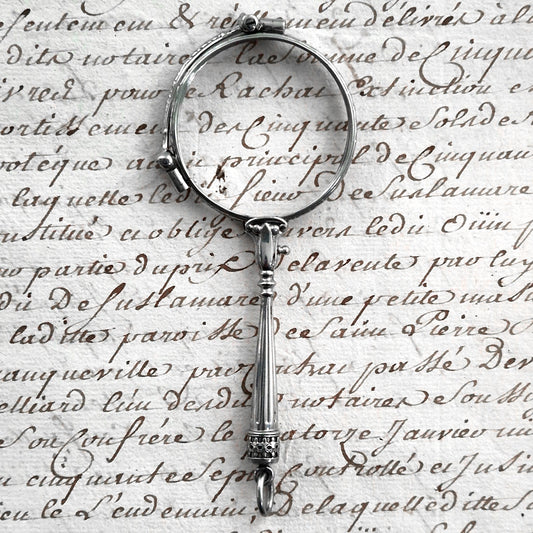 sentement en ment délivrés à la
dits notaire la Somme de Cinqua
ivres pour le Rachat Extinction e
ortissement des Cinquante Sols de R
poteque au principal de Cinquan
laquelle le Sieur DeSuslamare
nstitué et obligé Envers ledit
partie du prix Delavente par luy
du DeSuslamare d'une petite
laditte paroisse De Saint Pierre
anqueville par Contrat passé Dev
elliard l'un desdits notaires
Son Confrére le quatorze Janvier
cinquante Sept Controllé et Insi
ieu le L'endemain, De laquelle ditte S